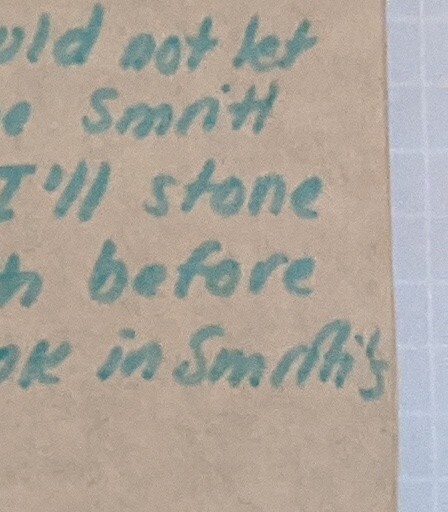 uld not let
e Smriti
I'll stone
th before
ok in Smriti's